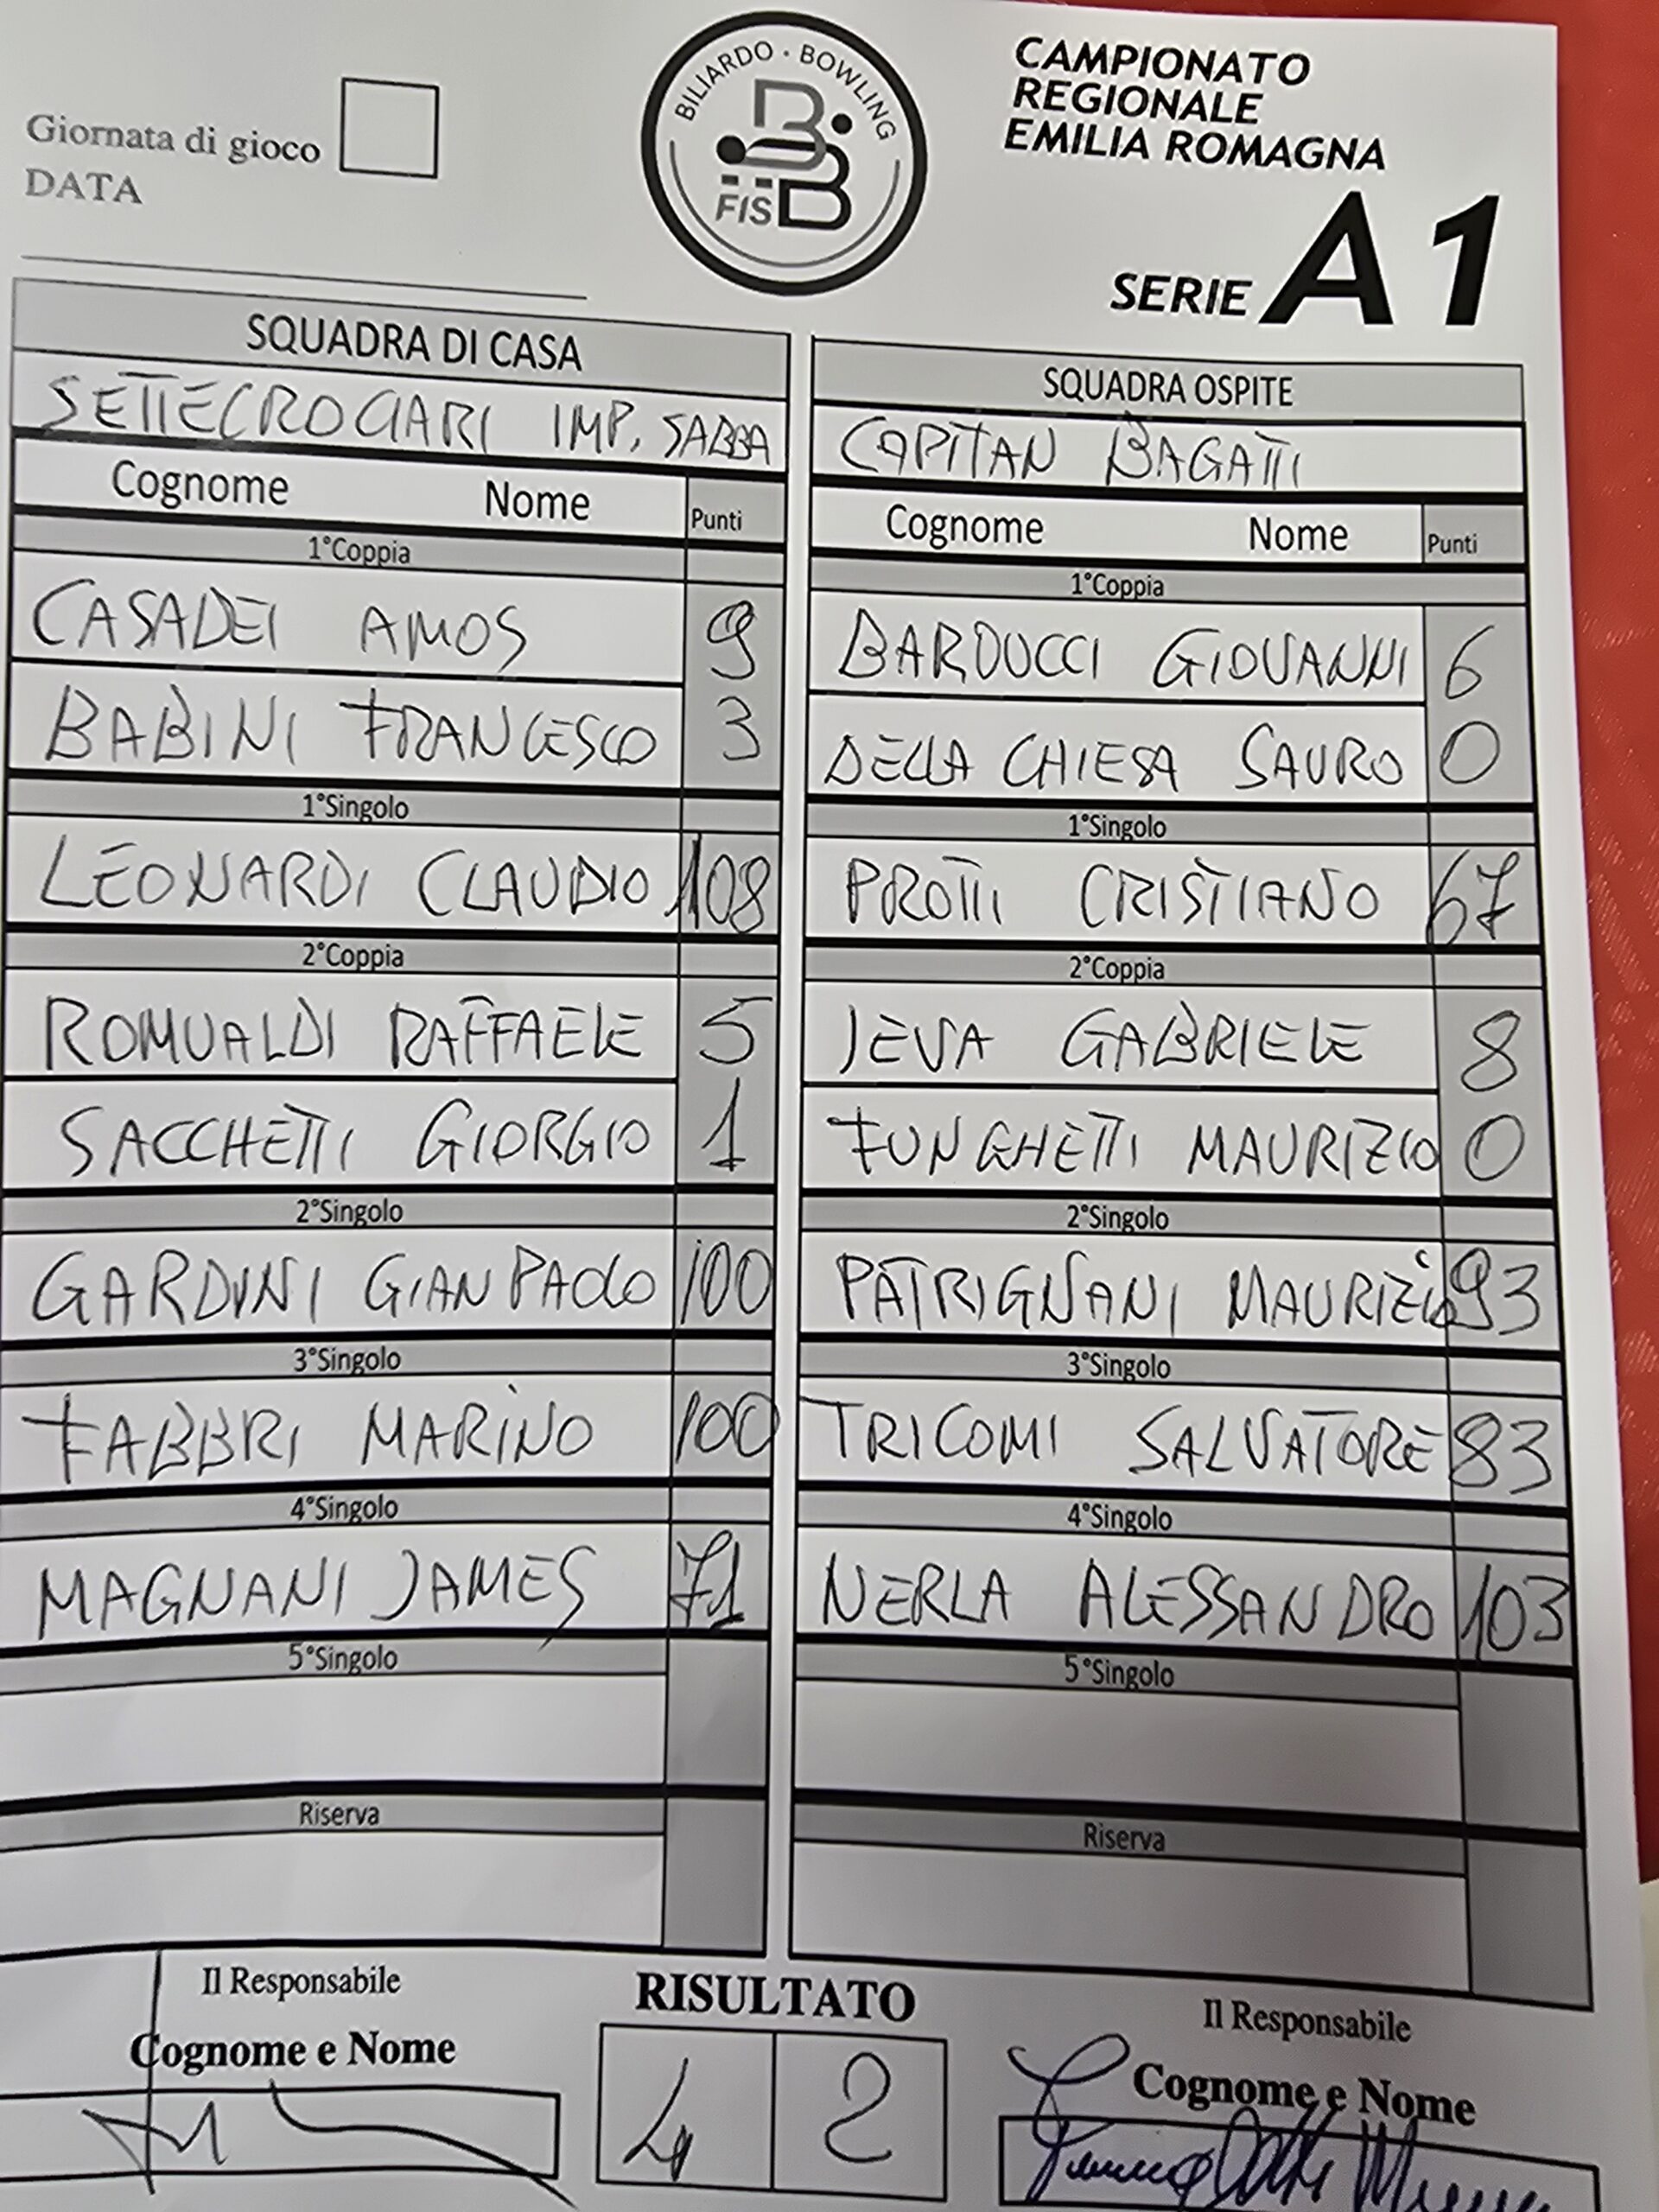 Giornata di gioco
DATA
BILIARDO · BOWLING
FISBB
CAMPIONATO
REGIONALE
EMILIA ROMAGNA
SERIE A1
SQUADRA DI CASA
SETTECROCIARI IMP. SABBA
Cognome Nome Punti
1°Coppia
CASADEI AMOS 9
BABINI FRANCESCO 3
1°Singolo
LEONARDI CLAUDIO 108
2°Coppia
ROMUALDI RAFFAELE 5
SACCHETTI GIORGIO 1
2°Singolo
GARDINI GIANPAOLO 100
3°Singolo
FABBRI MARINO 100
4°Singolo
MAGNANI JAMES 71
5°Singolo
Riserva
SQUADRA OSPITE
CAPITAN BAGATTI
Cognome Nome Punti
1°Coppia
BARDUCCI GIOVANNI 6
DELLA CHIESA SAURO 0
1°Singolo
PROTTI CRISTIANO 67
2°Coppia
JEVA GABRIELE 8
FUNGHETTI MAURIZIO 0
2°Singolo
PATRIGNANI MAURIZIO 93
3°Singolo
TRICOMI SALVATORE 83
4°Singolo
NERLA ALESSANDRO 103
5°Singolo
Riserva
Il Responsabile
Cognome e Nome
RISULTATO
4 2
Il Responsabile
Cognome e Nome